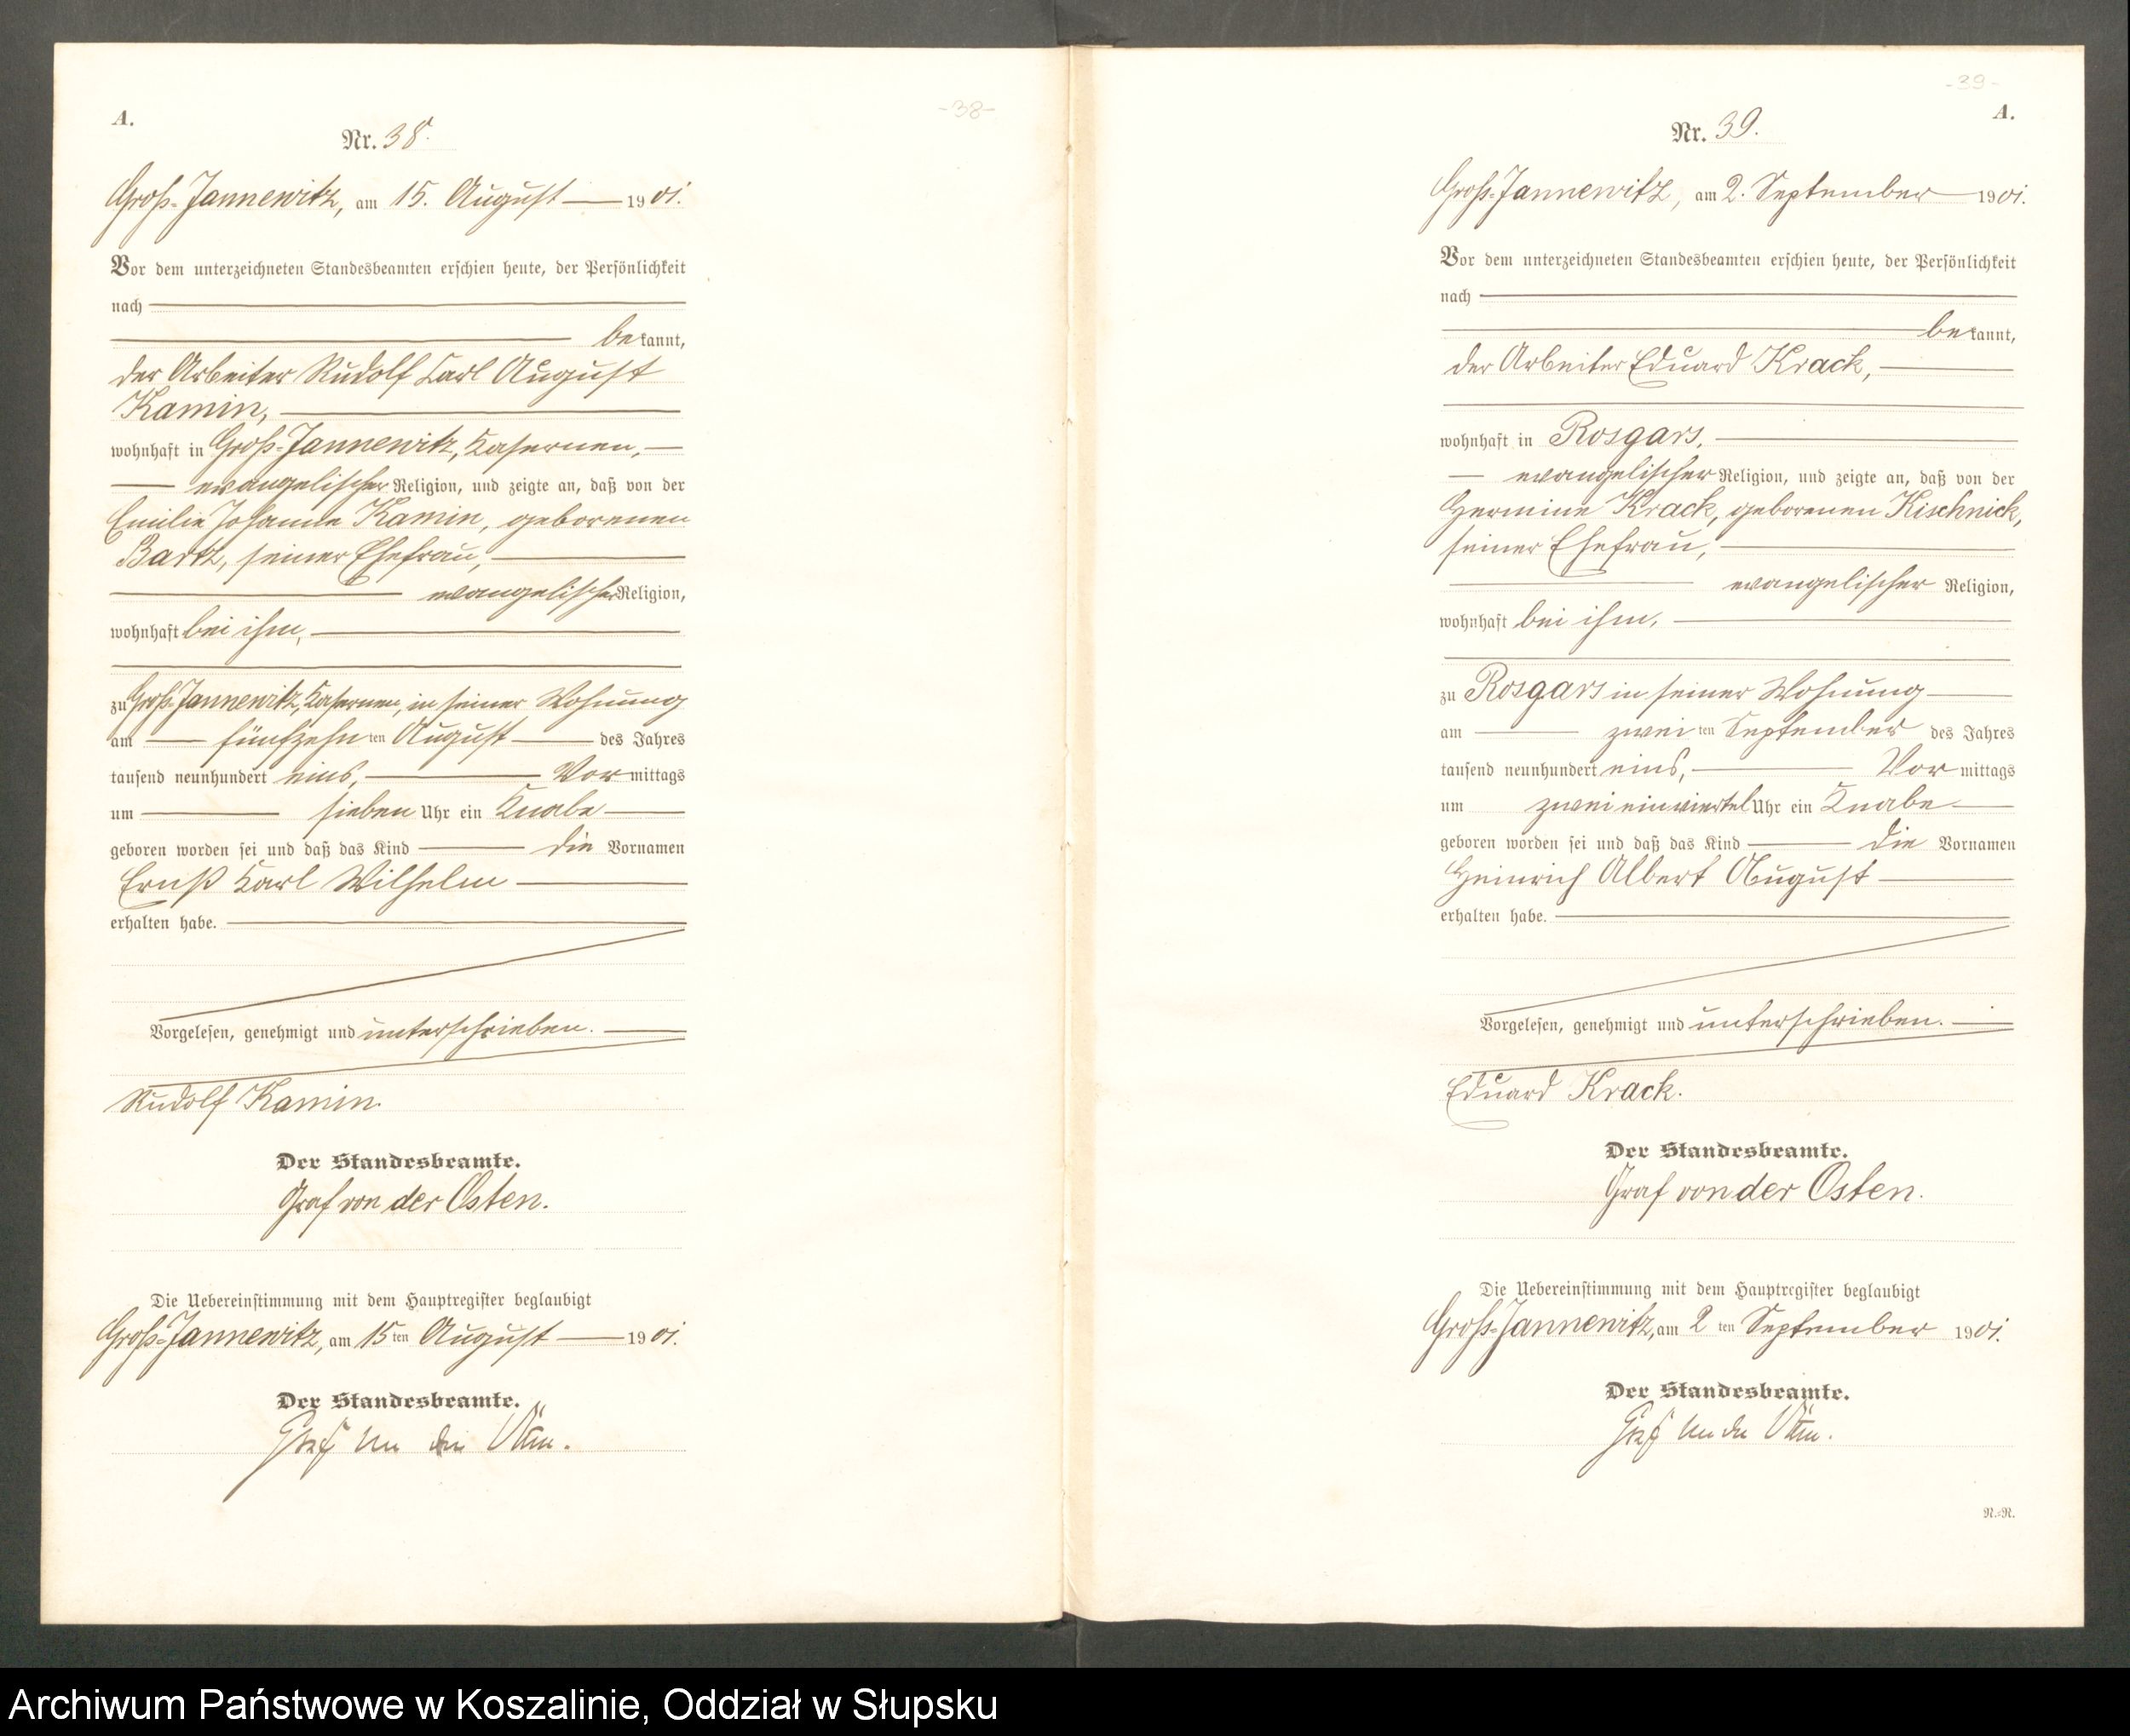 -38-
A.
Nr. 38.
Groß-Jannewitz, am 15. August 1901.
Vor dem unterzeichneten Standesbeamten erschien heute, der Persönlichkeit
nach
bekannt,
der Arbeiter Rudolf Carl August
Kamin,
wohnhaft in Groß-Jannewitz, Kasernen,
evangelischer Religion, und zeigte an, daß von der
Emilie Johanne Kamin, geborenen
Bartz, seiner Ehefrau,
evangelischer Religion,
wohnhaft bei ihm,
zu Groß-Jannewitz, Kasernen, in seiner Wohnung
am fünfzehnten August des Jahres
tausend neunhundert eins, Vormittags
um sieben Uhr ein Knabe
geboren worden sei und daß das Kind die Vornamen
Ernst Karl Wilhelm
erhalten habe.
Vorgelesen, genehmigt und unterschrieben.
Rudolf Kamin.
Der Standesbeamte.
Graf von der Osten.
Die Uebereinstimmung mit dem Hauptregister beglaubigt
Groß-Jannewitz, am 15ten August 1901.
Der Standesbeamte.
Graf von der Osten.
-39-
A.
Nr. 39.
Groß-Jannewitz, am 2. September 1901.
Vor dem unterzeichneten Standesbeamten erschien heute, der Persönlichkeit
nach
bekannt,
der Arbeiter Eduard Krack,
wohnhaft in Rosgars,
evangelischer Religion, und zeigte an, daß von der
Hermine Krack, geborenen Kischnick,
seiner Ehefrau,
evangelischer Religion,
wohnhaft bei ihm,
zu Rosgars in seiner Wohnung
am zweiten September des Jahres
tausend neunhundert eins, Vormittags
um zwei einviertel Uhr ein Knabe
geboren worden sei und daß das Kind die Vornamen
Heinrich Albert August
erhalten habe.
Vorgelesen, genehmigt und unterschrieben.
Eduard Krack.
Der Standesbeamte.
Graf von der Osten.
Die Uebereinstimmung mit dem Hauptregister beglaubigt
Groß-Jannewitz, am 2ten September 1901.
Der Standesbeamte.
Graf von der Osten.
N.=N.
Archiwum Państwowe w Koszalinie, Oddział w Słupsku